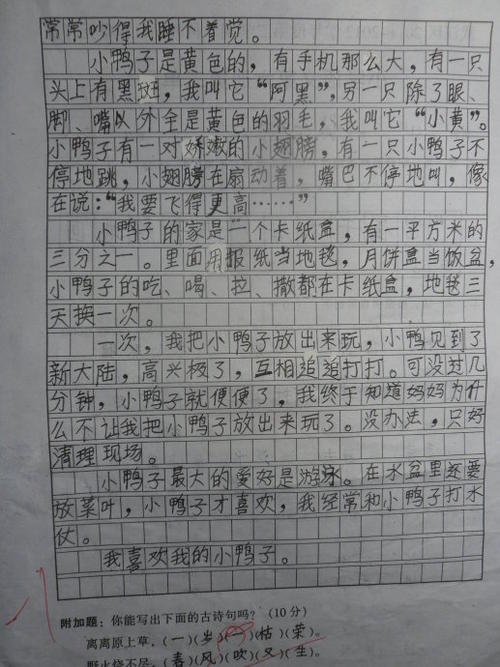 常常吵得我睡不着觉。
小鸭子是黄色的，有手机那么大，有一只
头上有黑斑，我叫它“阿黑”，另一只除了眼、
脚、嘴以外全是黄色的羽毛，我叫它“小黄”。
小鸭子有一对娇嫩的小翅膀，有一只小鸭子不
停地跳，小翅膀在扇动着，嘴巴不停地叫，像
在说：“我要飞得更高……”
小鸭子的家是一个卡纸盒，有一平方米的
三分之一。里面用报纸当地毯，月饼盒当饭盆，
小鸭子的吃、喝、拉、撒都在卡纸盒，地毯三
天换一次。
一次，我把小鸭子放出来玩，小鸭见到了
新大陆，高兴极了，互相追追打打。可没过几
分钟，小鸭子就便便了，我终于知道妈妈为什
么不让我把小鸭子放出来玩了。没办法，只好
清理现场。
小鸭子最大的爱好是游泳。在水盆里还要
放菜叶，小鸭子才喜欢，我经常和小鸭子打水
仗。
我喜欢我的小鸭子。
附加题：你能写出下面的古诗句吗？（10分）
离离原上草，(一)(岁)(一)(枯)(荣)。
野火烧不尽，(春)(风)(吹)(又)(生)。